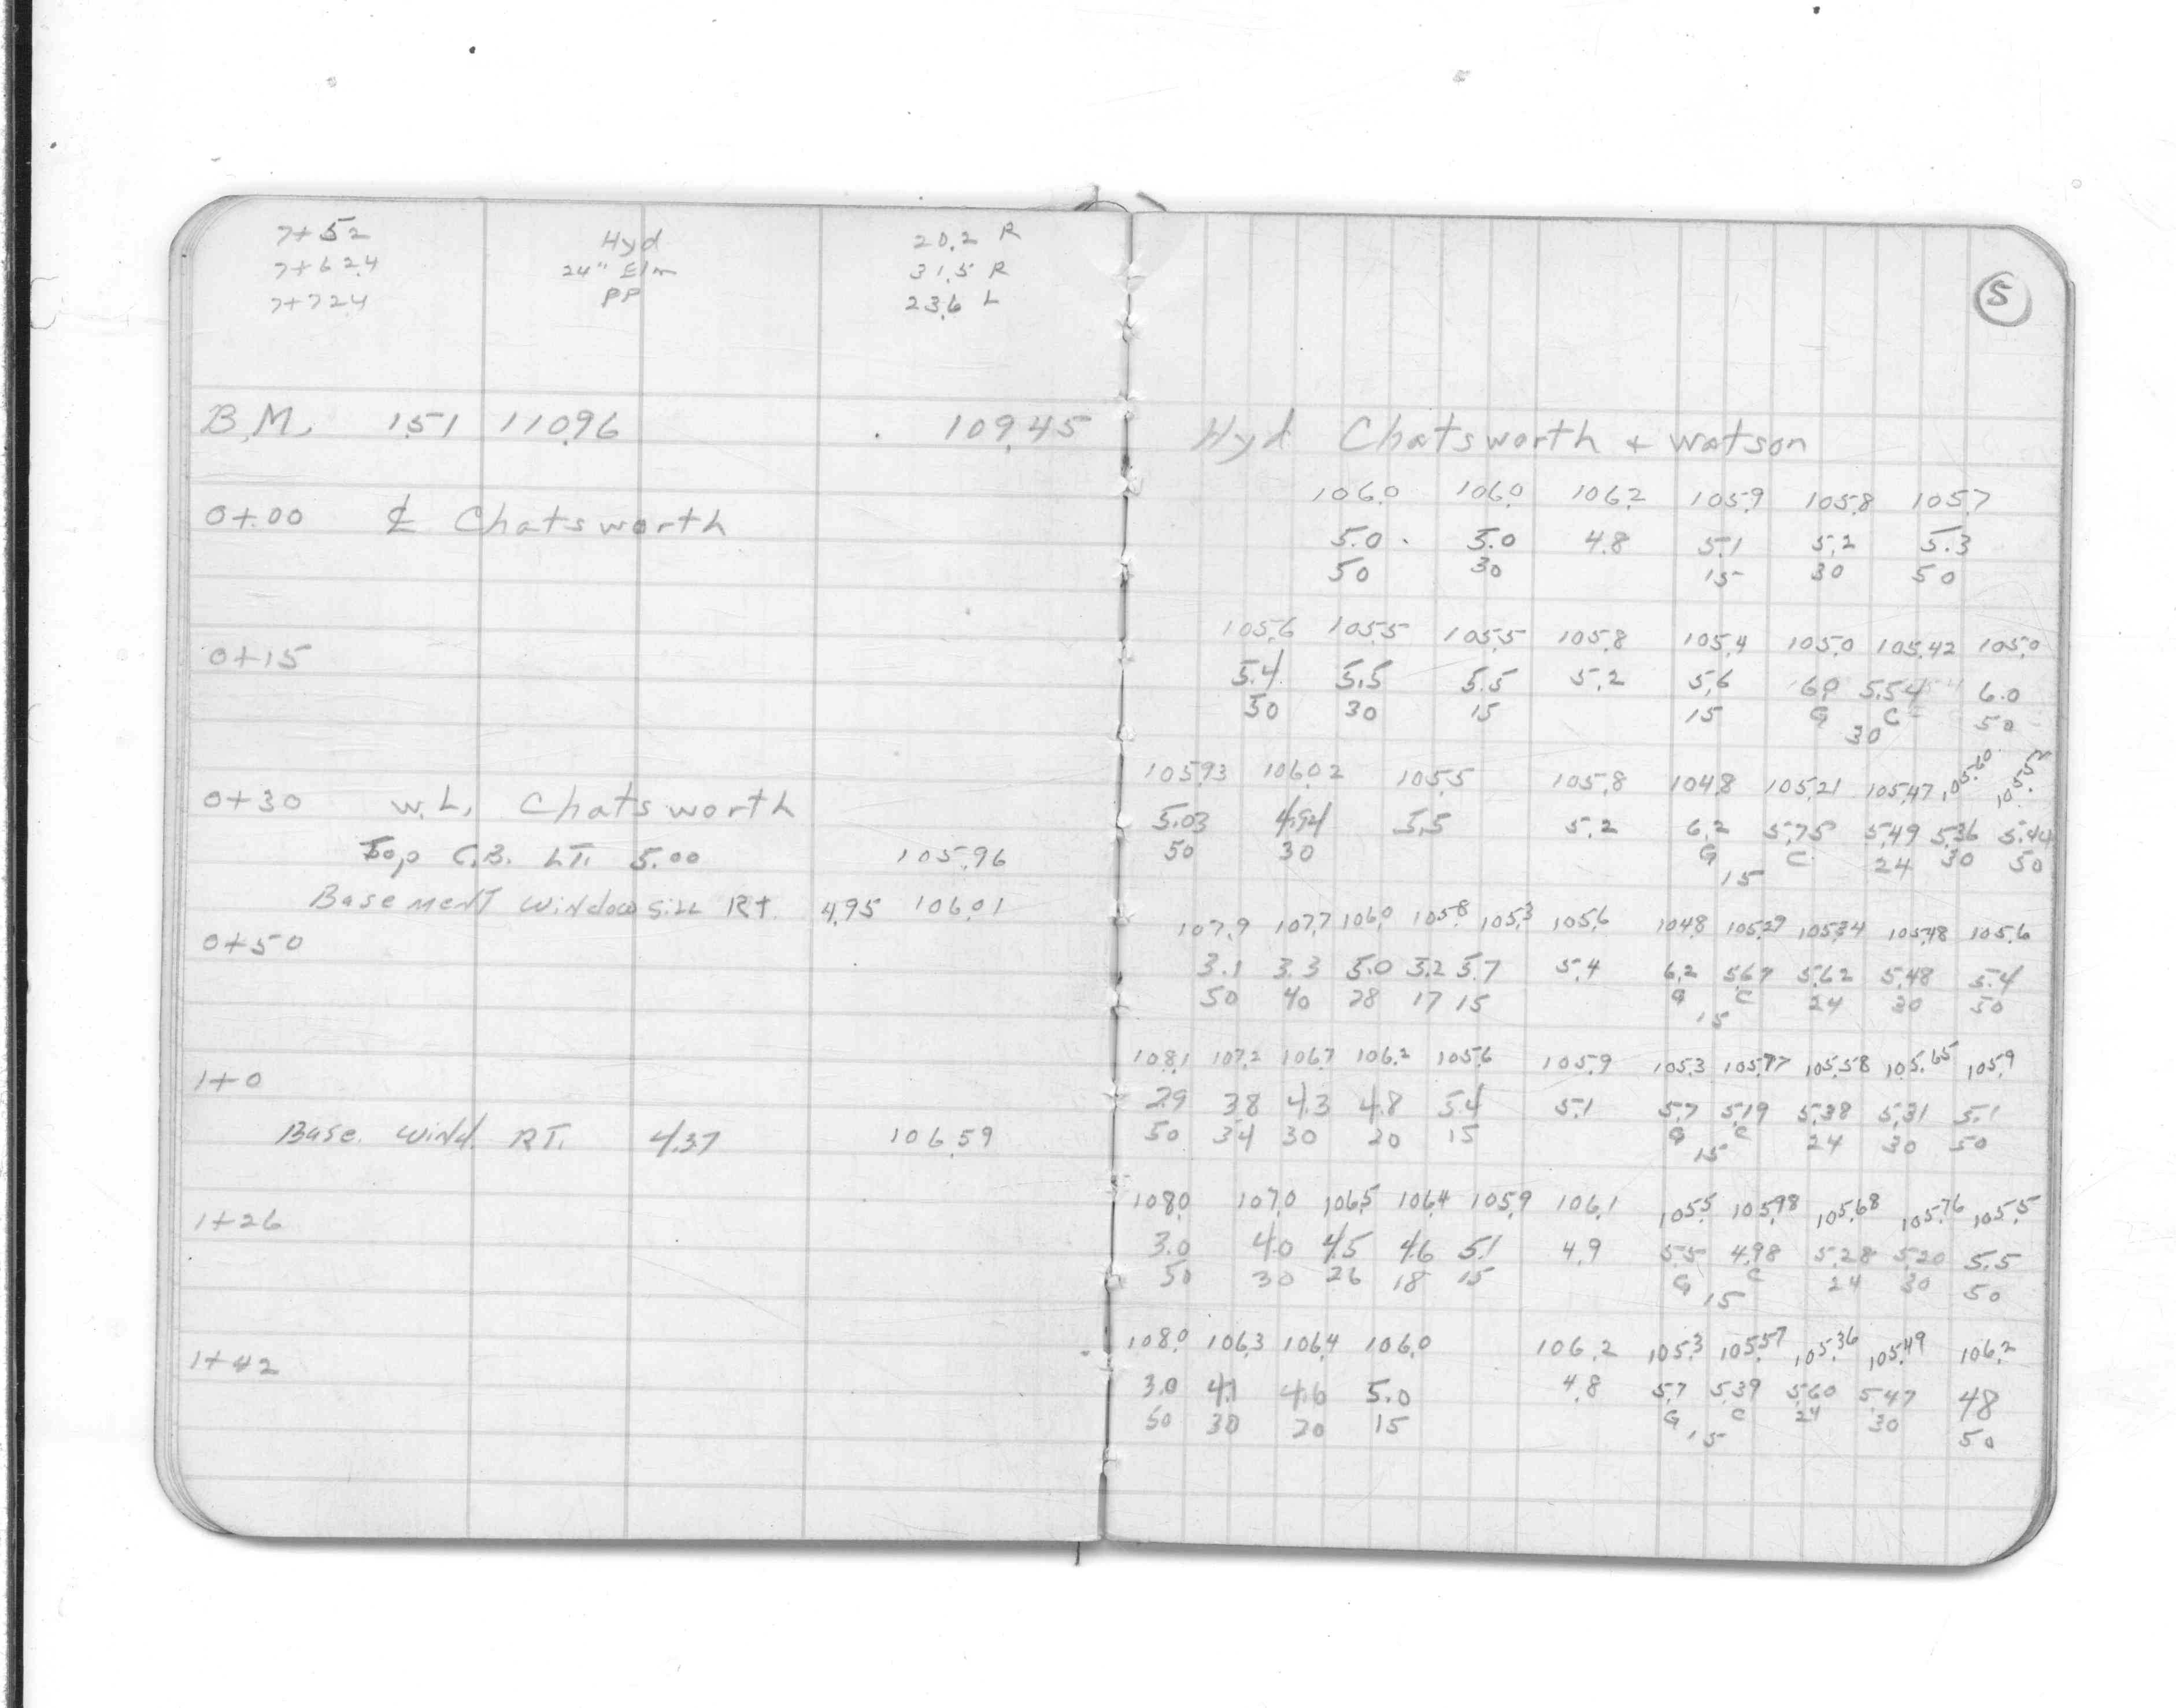 7+52 Hyd 20.2 R
7+62.4 24" Elm 31.5 R
7+72.4 PP 23.6 L
5
B.M. 1.51 110.96 109.45 Hyd Chatsworth + Watson
106.0 106.0 106.2 105.9 105.8 105.7
0+00 ℄ Chatsworth 5.0 5.0 4.8 5.1 5.2 5.3
50 30 15 30 50
105.6 105.5 105.5 105.8 105.4 105.0 105.42 105.0
0+15 5.4 5.5 5.5 5.2 5.6 6.0 5.54 6.0
50 30 15 15 G C 50
30
105.93 106.02 105.5 105.8 104.8 105.21 105.47 105.60 105.52
0+30 W.L. Chatsworth 5.03 4.94 5.5 5.2 6.2 5.75 5.49 5.36 5.44
Top C.B. LT. 5.00 105.96 50 30 G C 24 30 50
15
Basement Window Sill Rt. 4.95 106.01
107.9 107.7 106.0 105.8 105.3 105.6 104.8 105.29 105.34 105.48 105.6
0+50 3.1 3.3 5.0 5.2 5.7 5.4 6.2 5.67 5.62 5.48 5.4
50 40 28 17 15 G C 24 30 50
15
108.1 107.2 106.7 106.2 105.6 105.9 105.3 105.77 105.58 105.65 105.9
1+0 2.9 3.8 4.3 4.8 5.4 5.1 5.7 5.19 5.38 5.31 5.1
Base. Wind. RT. 4.37 106.59 50 34 30 20 15 G C 24 30 50
15
108.0 107.0 106.5 106.4 105.9 106.1 105.5 105.98 105.68 105.76 105.5
1+26 3.0 4.0 4.5 4.6 5.1 4.9 5.5 4.98 5.28 5.20 5.5
50 30 26 18 15 G C 24 30 50
15
108.0 106.3 106.4 106.0 106.2 105.3 105.57 105.36 105.49 106.2
1+42 3.0 4.6 5.0 4.8 5.7 5.39 5.60 5.47 4.8
50 30 20 15 G C 24 30 50
15